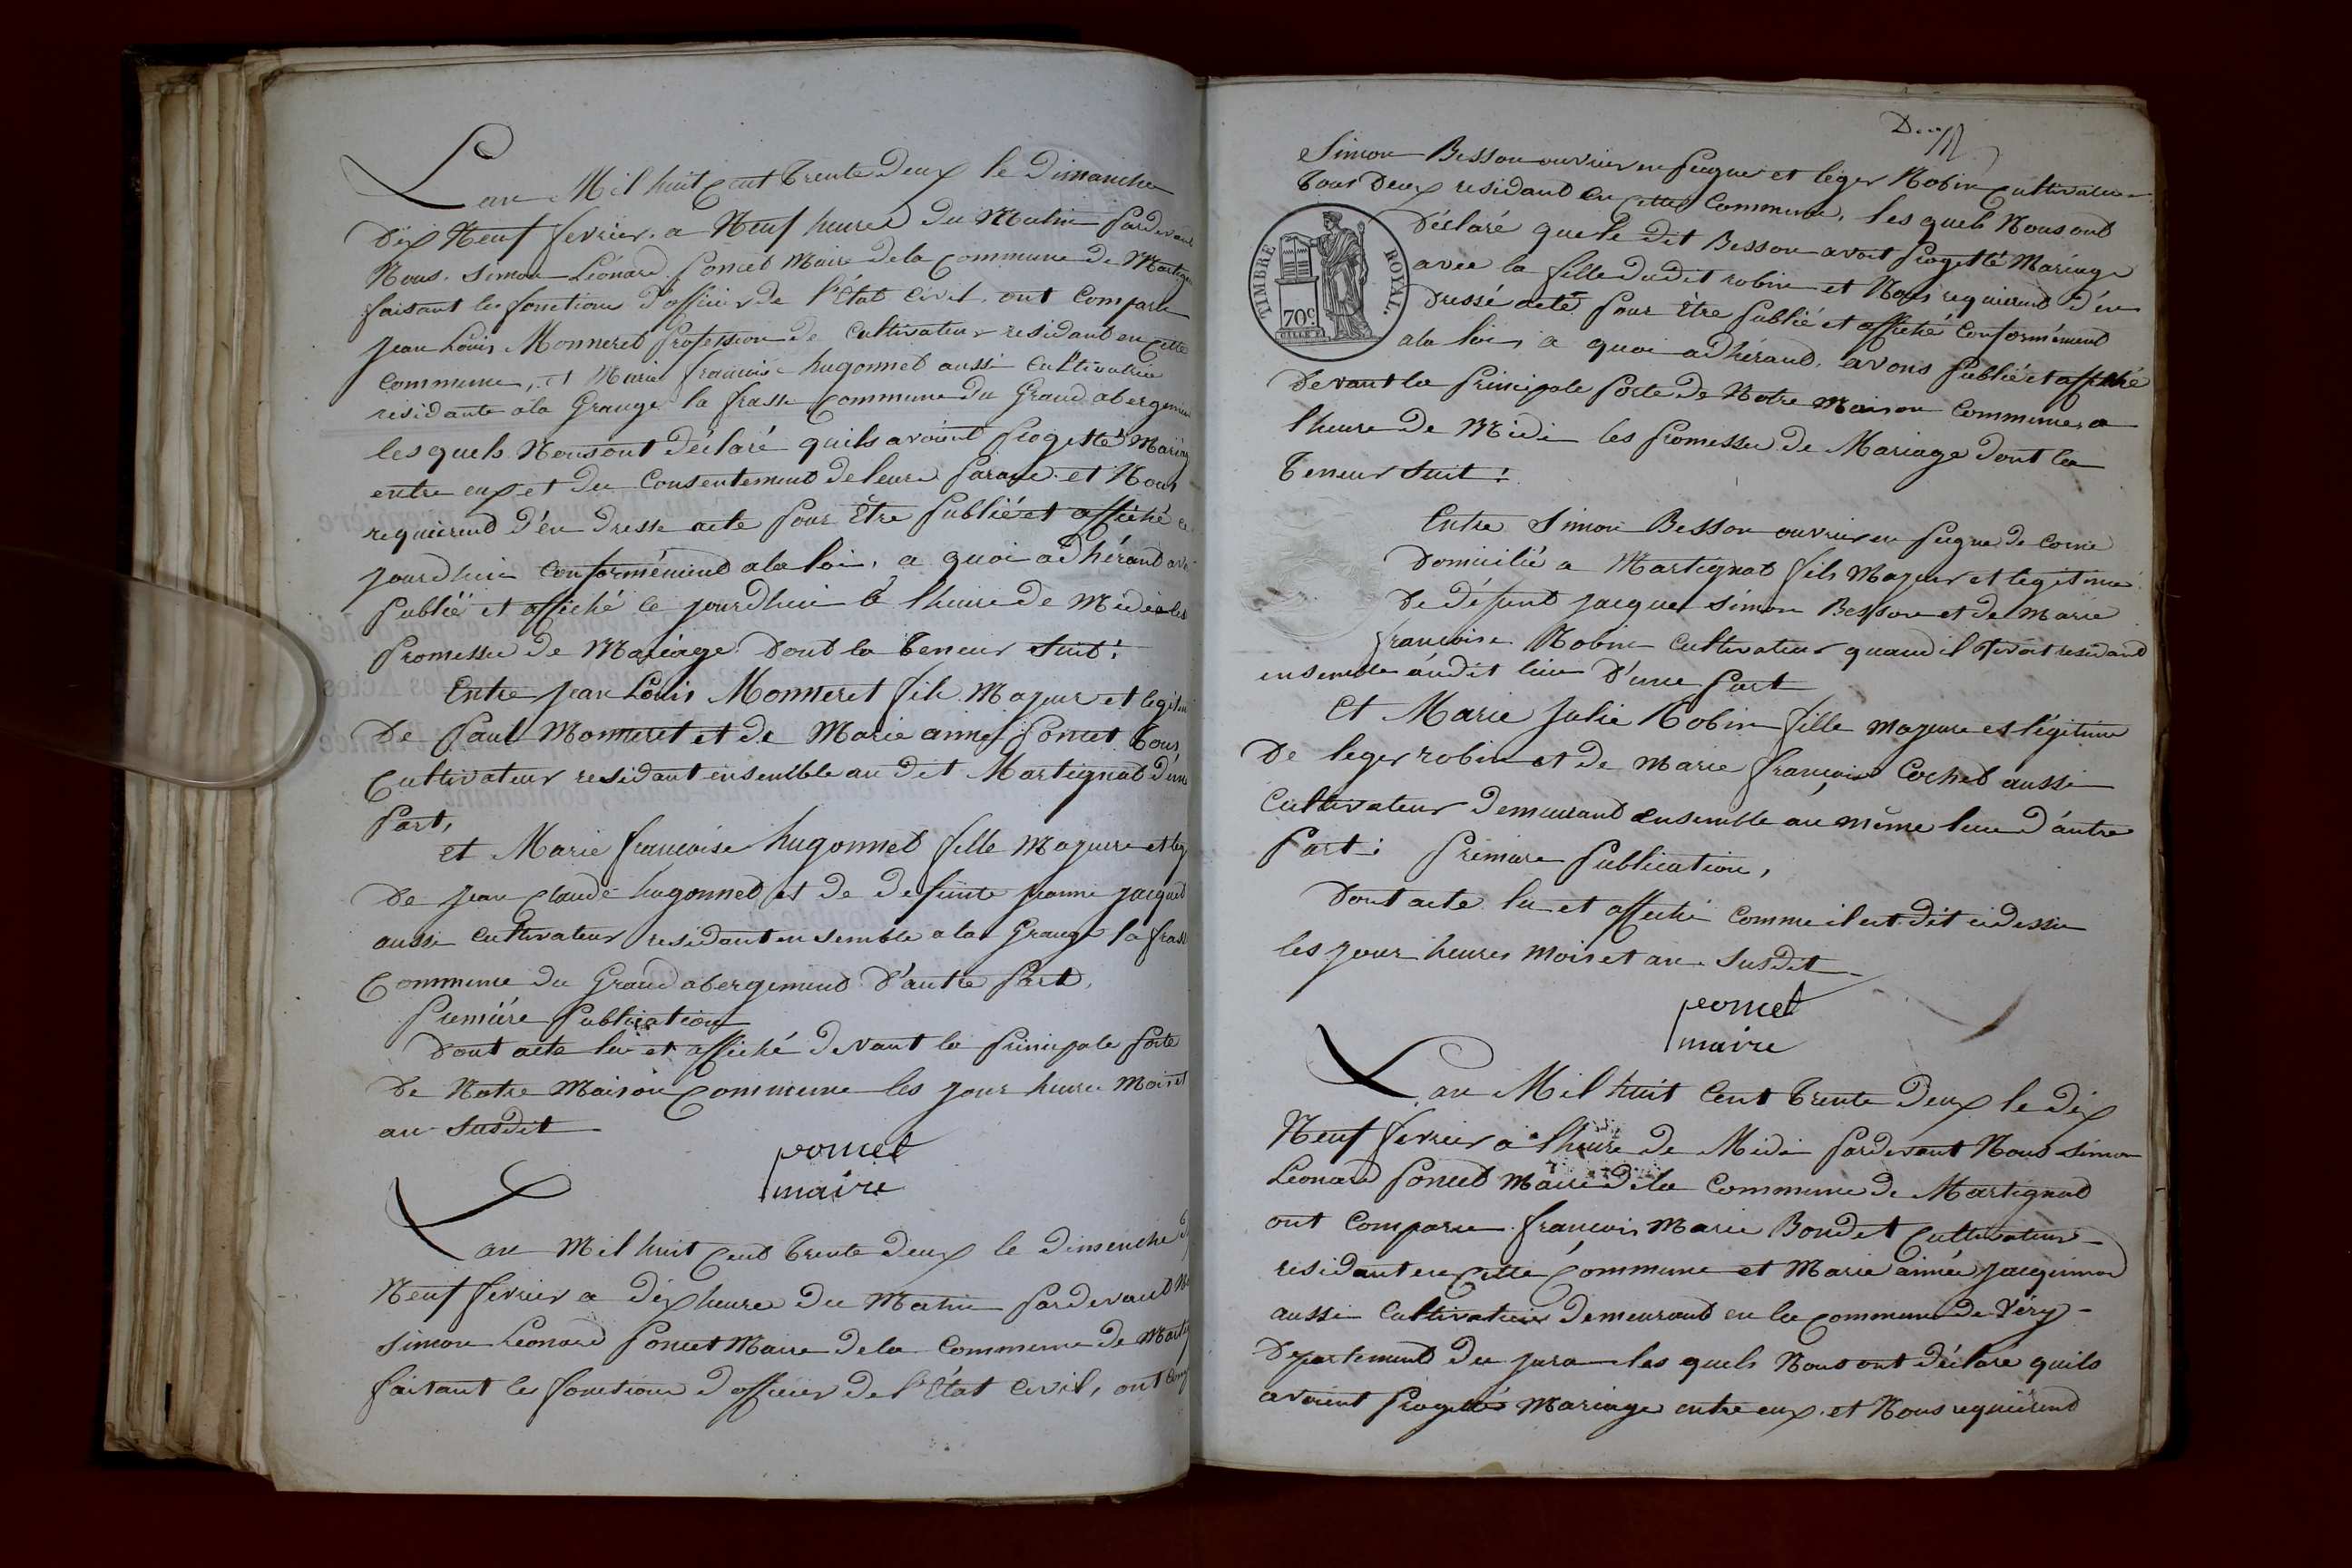 Lan Mil huit cent trente deux le Dimanche
Dix Neuf fevrier, a Neuf heures du Matin pardevant
Nous, Simon Léonard Poncet Maire de la commune de Martign
faisant les fonctions d'officier de l'Etat Civil, ont Comparu
jean Louis Monneret Profession de Cultivateur residant en cette
Commune, et Marie francoise hugonnet aussi Cultivatrice
residante a la Grange la frasse commune du Grand abergemen
les quels Nous ont déclaré quils avoient progetté Mariag
entre eux et du Consentement de leurs parans et Nous
requierend d'en dresse acte pour être publié et affiché ce
jourdhui Conformémend a la loi, a quoi adhérand avo
publié et affiché ce jourdhui à lheure de Midi les
promesse de Mariage dont la teneur suit:
Entre jean Louis Monneret fils Majeur et legitim
De paul Monneret et de Marie aimé Poncet tous
Cultivateur residant ensemble au dit Martignat d'une
part,
et Marie francoise hugonnet fille Majeure et leg
De jean claude hugonnet et de defunte jeanne jacquet
aussi Cultivateur residant ensemble a la Grange la frass
Commune du Grand abergemend d'autre part,
premiére publication
Dont acte lu et affiché devant la principale porte
De Notre Maison Commune les jour heure Mois et
an susdit
poncet
maire
Lan Mil huit Cent trente deux le dimenche di
Neuf fevrier a dix heure du Matin pardevand No
Simon Leonard Poncet Maire de la Commune de Martig
faisant les fonctions d officier de l'Etat Civil, ont Comp
Deux
Simon Besson ouvrier en peigne et léger Robin Cultivateur
tous Deux residand en cette Commune, les quels Nous ond
déclaré que le dit Besson avoit progetté Mariage
avec la fille du dit robin et Nous requierend d'en
dressé acte pour être publié et affiché Conformémend
a la loi, a quoi adhérand, avons publié et affiché
devant la principale porte de Notre Maison Commune a
lheure de Midi les promesse de Mariage dont la
teneur suit:
TIMBRE ROYAL.
70c
Entre Simon Besson ouvrier en peigne de Corne
Domicilié a Martignat fils Majeur et legitime
De défund jacque simon Besson et de Marie
francoise Robin Cultivateur quand il vivoit residand
ensemble audit lieu d'une part
Et Marie Julie Robin fille Majeure et légitime
De leger robin et de Marie francoise Cochet aussi
Cultivateur demeurand ensemble au même lieu d'autre
part: premiere publication,
Dont acte lu et affiché comme il est dit cidessu
les jour heures Mois et an susdit
poncet
maire
Lan Mil huit Cent trente deux le dix
Neuf fevrier a l'heure de Midi pardevant Nous Simon
Leonard Poncet Maire de la Commune de Martignat
ont Comparu francois Marie Bondet Cultivateur
residant en cette Commune et Marie aimée jacquinod
aussi Cultivatrice demeurand en la commune de Véry
Departemend du jura les quels Nous ont déclaré quils
avoient progetté Mariage entre eux, et Nous requierend